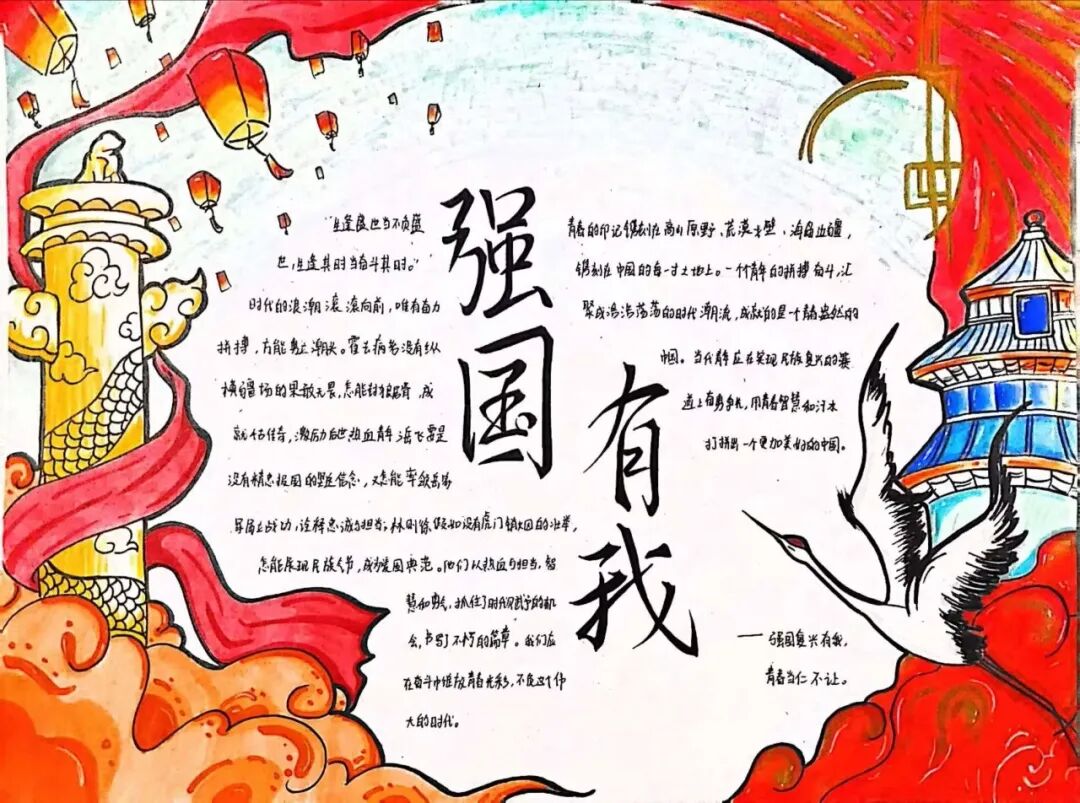 强国
有我
"生逢盛世当不负盛
世,生逢其时当奋斗其时。"
时代的浪潮滚滚向前,唯有奋力
拼搏,方能勇立潮头。霍去病若没有纵
横疆场的果敢无畏,怎能封狼居胥,成
就千古传奇,激励后世热血青年;岳飞若是
没有精忠报国的坚定信念,又怎能率领岳家
军屡立战功,诠释忠诚与担当;林则徐假如没有虎门销烟的壮举,
怎能展现民族气节,成为爱国典范。他们以热血与担当,智
慧和勇气,抓住了时代赋予的机
会,书写了不朽的篇章。我们应
在奋斗中绽放青春光彩,不负这个伟
大的时代。
青春的印记镌刻在高山原野、荒漠戈壁、海岛边疆,
镌刻在中国的每一寸土地上。一个个青年的拼搏奋斗,汇
聚成浩浩荡荡的时代潮流,成就的是一个青春盎然的
中国。当代青年应在实现民族复兴的赛
道上奋勇争先,用青春智慧和汗水
打拼出一个更加美好的中国。
——强国复兴有我,
青春当仁不让。